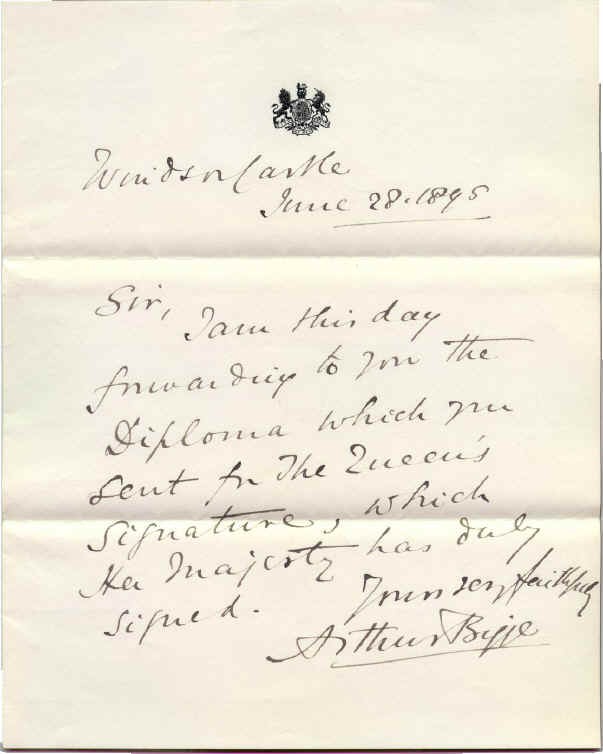 Windsor Castle
June 28. 1895
Sir,
I am this day
forwarding to you the
Diploma which you
sent for The Queen's
signature, which
Her Majesty has duly
signed.
Yours very faithfully
Arthur Bigge